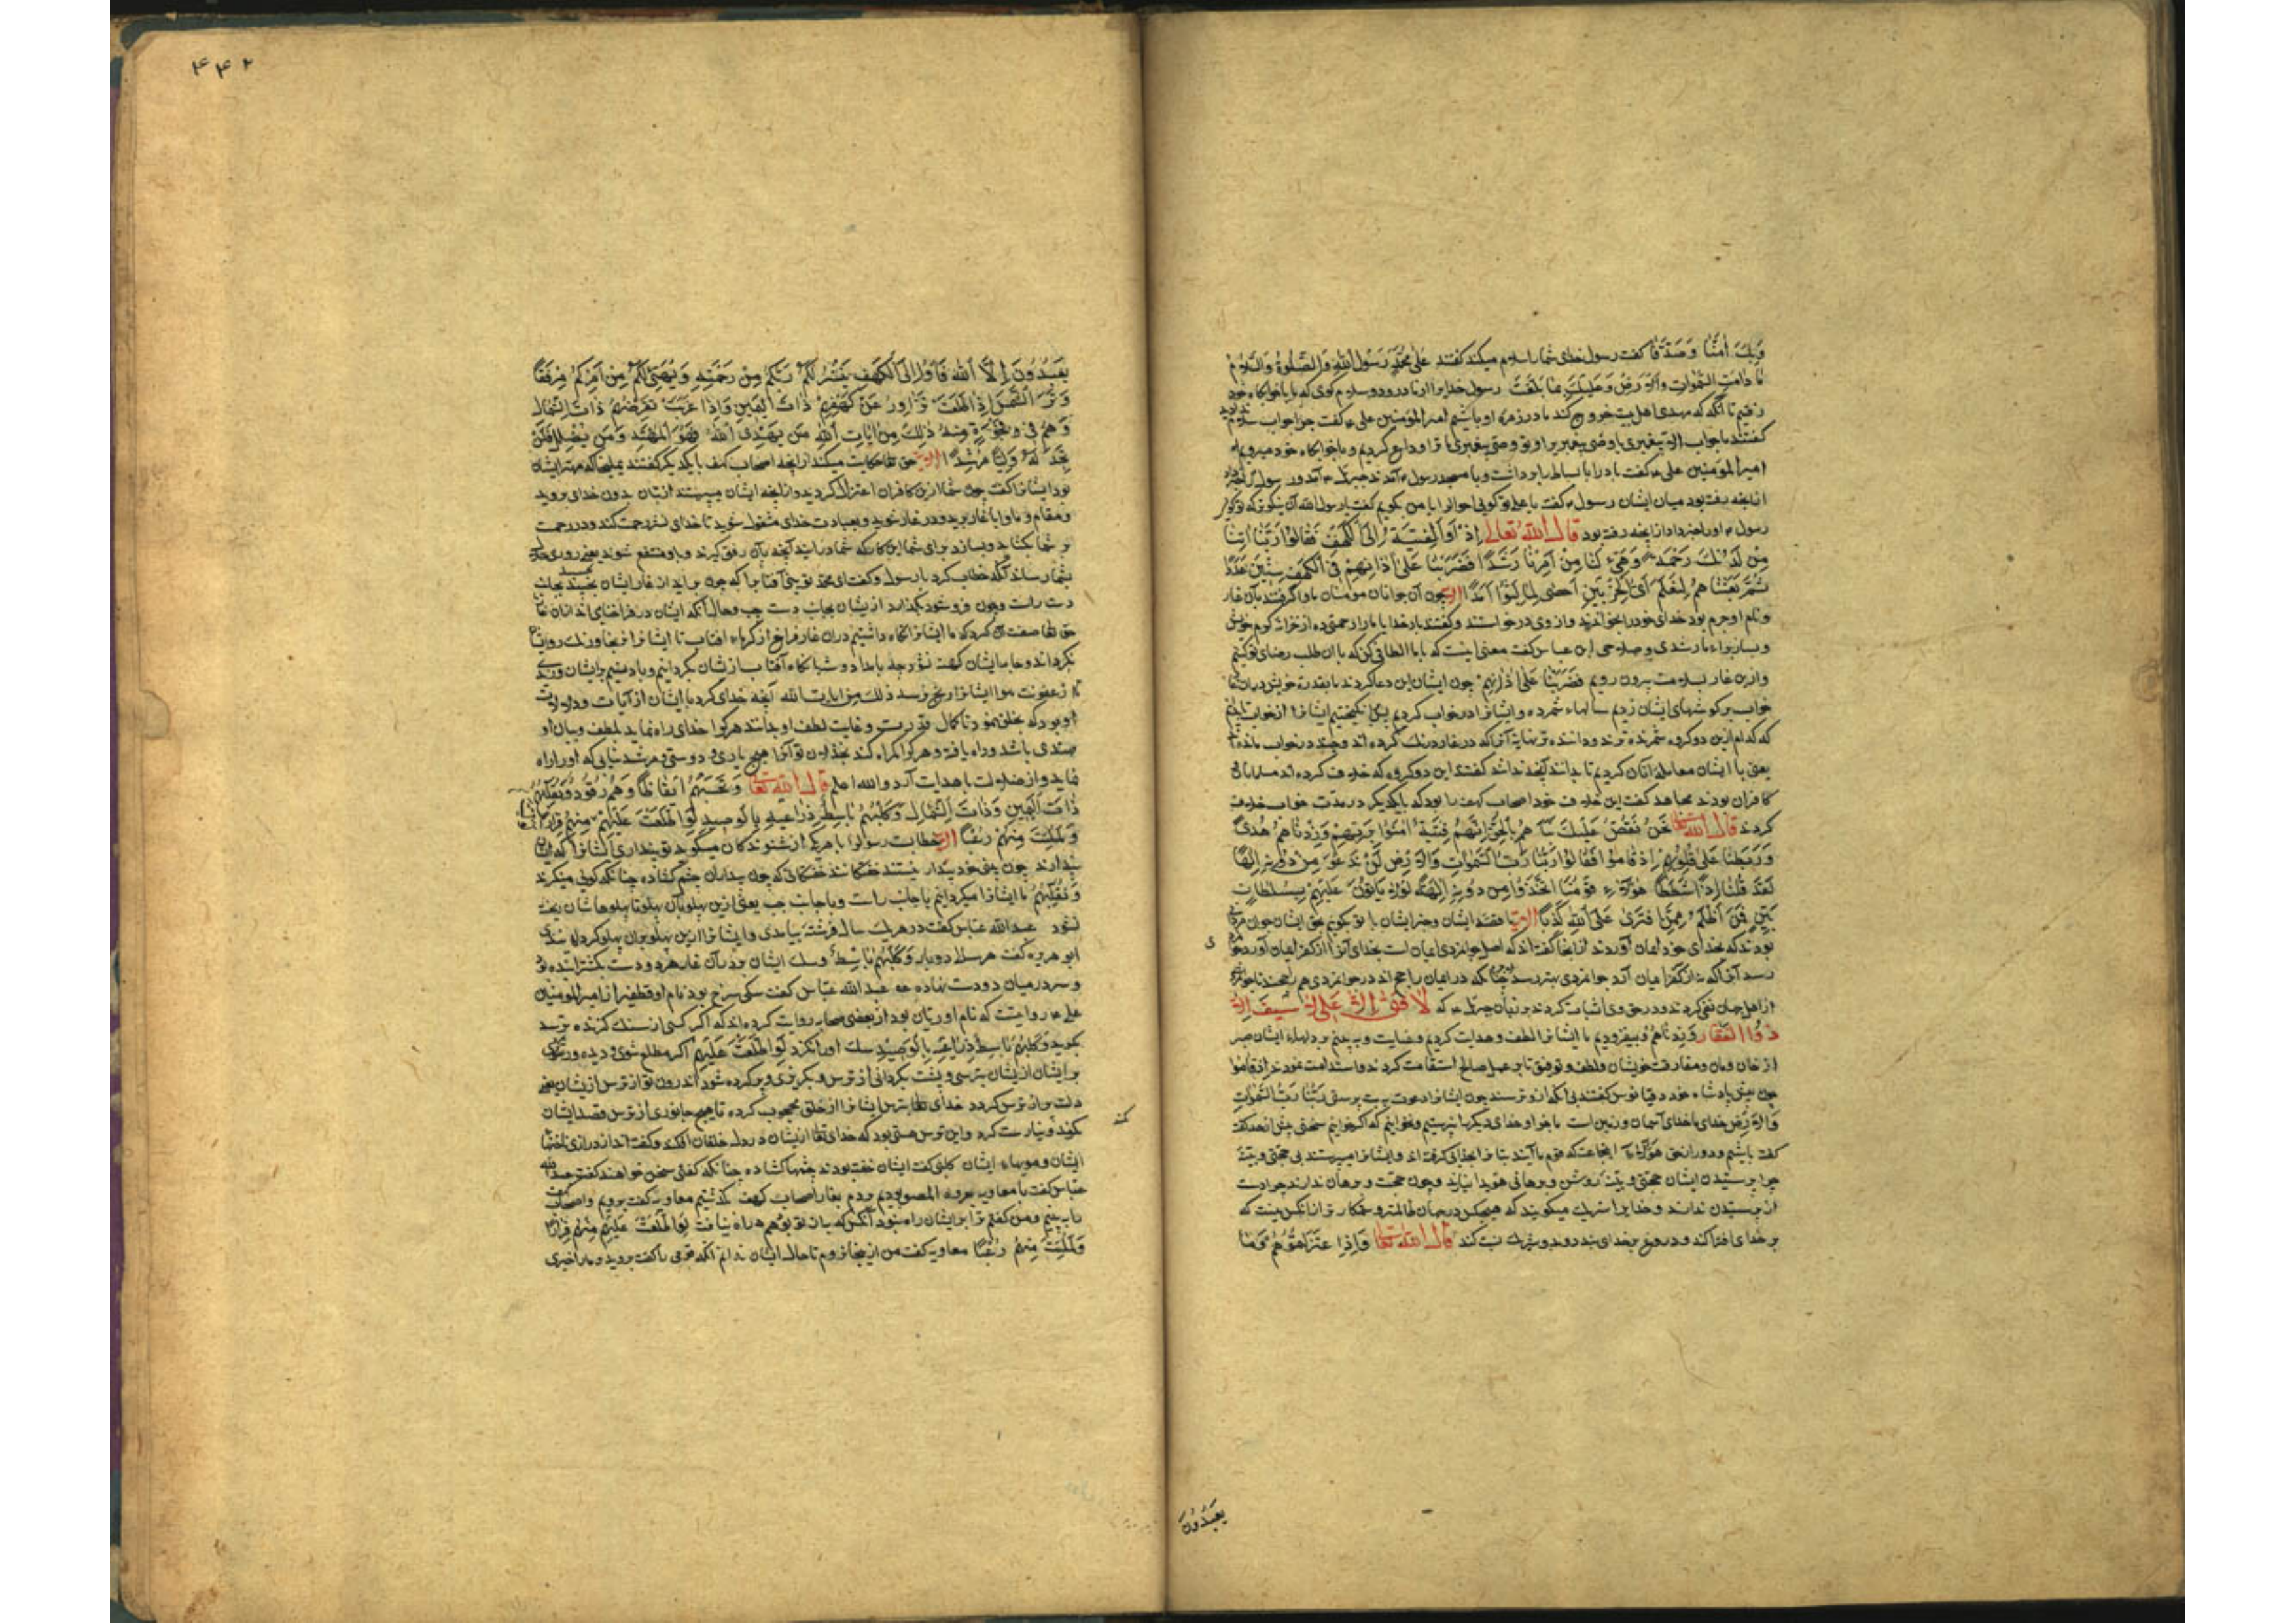 وَبِكَ اٰمَنَّا وَصَدَّقْنَا کفت رسول خدای شما را سلام میکند کفتند عَلٰی مُحَمَّدٍ رَسُولِ اللّٰهِ الصَّلٰوةُ وَالسَّلَامُ
مَا دَامَتِ السَّمٰوَاتُ وَالْاَرْضُ وَعَلَيْكَ بِمَا بَلَّغْتَ رسول خدا را از ما درود و سلام کوی که ما با خوابکاه خود
رفتیم تا آنکه که مهدی اهل بیت خروج کند ما در زمره او باشیم امیر المؤمنین علی ع کفت جرا جواب سلام
کفتند ما جواب الا پیغبری یا وصی پیغبر و تو وصی پیغبری ما ترا وداع کردیم و با خوابکاه خود میرویم
امیر المؤمنین علی ع کفت باد را با بساط را برداشت و با مسجد رسول ع آمدند جبرئیل ع آمد و رسول را
از آنچه رفته بود میان ایشان رسول ع کفت یا علی تو کویی احوال را یا من کویم کفت یا رسول الله آن نیکوتر که تو کویی
رسول ع او را خبر داد از آنچه رفته بود قال الله تعالی اِذْ اَوَی الْفِتْيَةُ اِلَی الْكَهْفِ فَقَالُوا رَبَّنَا اٰتِنَا
مِنْ لَدُنْكَ رَحْمَةً وَهَيِّءْ لَنَا مِنْ اَمْرِنَا رَشَدًا فَضَرَبْنَا عَلٰی اٰذَانِهِمْ فِی الْكَهْفِ سِنِينَ عَدَدًا
ثُمَّ بَعَثْنَاهُمْ لِنَعْلَمَ اَیُّ الْحِزْبَيْنِ اَحْصٰی لِمَا لَبِثُوا اَمَدًا چون آن جوانان مومنان ماوا کرفتند بآن غار
و نام او جرم بود خدای خود را بخواندند و از وی درخواستند و کفتند بار خدایا ما را رحمتی ده از خزانه کرم خویش
و بساز برای ما رشدی و صلاحی ابن عباس کفت معنی اینست که با ما الطافی کن که با آن طلب رضای تو کنیم
و ازین غار بسلامت بیرون رویم فَضَرَبْنَا عَلٰی اٰذَانِهِمْ چون ایشان این دعا کردند ما بقدرت خویش در آن غار
خواب بر کوشهای ایشان زدیم سالهاء شمرده و ایشانرا در خواب کردیم پس برانکیختیم ایشانرا از خواب تا بدانیم
که کدام ازین دو کروه شمرنده ترند و داننده تر نهایة آنرا که در غار درنک کرده اند و چند در خواب مانده
یعنی با ایشان معامله آنان کردیم تا بدانند آنچه ندانند کفتند این دو کروه که خلاف کرده اند مسلمانان
کافران بودند مجاهد کفت این خلاف خود اصحاب کهف را بود که با یکدیکر در مدت خواب خلاف
کردند قال الله تعالی نَحْنُ نَقُصُّ عَلَيْكَ نَبَأَهُمْ بِالْحَقِّ اِنَّهُمْ فِتْيَةٌ اٰمَنُوا بِرَبِّهِمْ وَزِدْنَاهُمْ هُدًی
وَرَبَطْنَا عَلٰی قُلُوبِهِمْ اِذْ قَامُوا فَقَالُوا رَبُّنَا رَبُّ السَّمٰوَاتِ وَالْاَرْضِ لَنْ نَدْعُوَ مِنْ دُونِهِ اِلٰهًا
لَقَدْ قُلْنَا اِذًا شَطَطًا هٰؤُلَاءِ قَوْمُنَا اتَّخَذُوا مِنْ دُونِهِ اٰلِهَةً لَوْلَا يَأْتُونَ عَلَيْهِمْ بِسُلْطَانٍ
بَيِّنٍ فَمَنْ اَظْلَمُ مِمَّنِ افْتَرٰی عَلَی اللّٰهِ كَذِبًا ما قصه ایشان و خبر ایشان با تو کویم بحق ایشان جوانمردانی
بودند که بخدای خود ایمان آوردند از اینجا کفته اند که اصل جوانمردی ایمان است بخدای
از اهل جهان نفی کردند و در حق وی اثبات کردند بر زبان جبرئیل ع که لَا فَتٰی اِلَّا عَلِی لَا سَيْفَ اِلَّا
ذُوالْفَقَار وَزِدْنَاهُمْ و بیفزودیم ما ایشانرا لطف و هدایت کردیم و عنایت و بر دلهاء ایشان صبر
از خان و مان و مفارقت خویشان و لطف و توفیق تا بر عمل صالح استقامت کردند اِذْ قَامُوا
چون پیش پادشاه خود دقیانوس کفتند بی آنکه ازو ترسند چون ایشانرا دعوت ببت پرستی رَبُّنَا رَبُّ السَّمٰوَاتِ
وَالْاَرْضِ خدای ما خدای آسمان و زمین است ما جز او خدای دیکر را نپرستیم و نخوانیم که اکر خوانیم سخنی
کفته باشیم و دور از حق هٰؤُلَاءِ این جماعت که قوم ما آیند بتانرا بخدایی کرفته اند و ایشانرا میپرستند بی حجتی و بینة
چرا بر پرستیدن ایشان حجتی و بینة روشن و برهانی هویدا نیارند و چون حجت و برهان ندارند چرا دست
از پرستیدن ندارند و خدایرا شریک میکویند که هیچکس در جهان ظالمتر و ستمکارتر از آنکس نیست که
بر خدای افترا کند و دروغ بر خدای بندد و بدو شریک نسبت کند قال الله تعالی وَاِذِ اعْتَزَلْتُمُوهُمْ وَمَا
يعبدون
٤٤٢
يَعْبُدُونَ اِلَّا اللّٰهَ فَأْوُا اِلَی الْكَهْفِ يَنْشُرْ لَكُمْ رَبُّكُمْ مِنْ رَحْمَتِهِ وَيُهَيِّئْ لَكُمْ مِنْ اَمْرِكُمْ مِرْفَقًا
وَتَرَی الشَّمْسَ اِذَا طَلَعَتْ تَزَاوَرُ عَنْ كَهْفِهِمْ ذَاتَ الْيَمِينِ وَاِذَا غَرَبَتْ تَقْرِضُهُمْ ذَاتَ الشِّمَالِ
وَهُمْ فِی فَجْوَةٍ مِنْهُ ذٰلِكَ مِنْ اٰيَاتِ اللّٰهِ مَنْ يَهْدِی اللّٰهُ فَهُوَ الْمُهْتَدِ وَمَنْ يُضْلِلْ فَلَنْ
تَجِدَ لَهُ وَلِيًّا مُرْشِدًا حق تعالی حکایت میکند از آنچه اصحاب کهف با یکدیکر کفتند یملیخا که مهتر ایشان
بود ایشانرا کفت چون شما ازین کافران اعتزال کردید و از آنچه ایشان میپرستند از بتان بدون خدای بروید
و مقام و ماوا با غار برید و در غار شوید و بعبادت خدای مشغول شوید تا خدای نشر رحمت کند و در رحمت
بر شما بکشاید و بسازد برای شما این کار که شما در آیید آنچه بآن رفق کیرند و باو منتفع شوند یعنی روزی حلال
بشما رساند آنکه خطاب کرد با رسول و کفت ای محمد تو بینی آفتابرا که چون برآید از غار ایشان بچسبد بجانب
دست راست و چون فرو شود بکذارد ازیشان بجانب دست چپ و حال آنکه ایشان در فراخنای اند از آن غار
حق تعالی صفت آن کرد که ما ایشانرا نکاه داشتیم در آن غار فراخ از کرماء افتاب تا ایشانرا نرنجاند و رنک روی
نکرداند و جامه ایشان کهنه نشود چه بامداد و شبانکاه آفتاب ازیشان بکردانیم و باد نسیم بر ایشان وزد
تا از عفونت هوا ایشانرا رنج نرسد ذٰلِكَ مِنْ اٰيَاتِ اللّٰهِ آنچه خدای کرد با ایشان از آیات و دلالت
او بود که بخلق نمود تا کمال قدرت و غایت لطف او بدانند هر کرا خدای راه نماید بلطف و بیان او
مهتدی باشد و راه یافته و هر کرا کمراه کند بخذلان تو او را هیچ یاری و دوستی و مرشد نیابی که او را راه
نماید و از ضلالت با هدایت آرد والله اعلم قال الله تعالی وَتَحْسَبُهُمْ اَيْقَاظًا وَهُمْ رُقُودٌ وَنُقَلِّبُهُمْ
ذَاتَ الْيَمِينِ وَذَاتَ الشِّمَالِ وَكَلْبُهُمْ بَاسِطٌ ذِرَاعَيْهِ بِالْوَصِيدِ لَوِ اطَّلَعْتَ عَلَيْهِمْ مِنْهُمْ فِرَارًا
وَلَمُلِئْتَ مِنْهُمْ رُعْبًا خطابست رسول را یا هر یکی از شنوندکان میکوید تو پنداری ایشانرا که ایشان
بیدارند چون بنی خود بیدار نیستند خفتکانند خفتکانی که چون بیداران چشم کشاده چنانکه کویی مینکرند
وَنُقَلِّبُهُمْ ما ایشانرا میکردانیم با جانب راست و با جانب چپ یعنی ازین پهلو بآن پهلو تا پهلوهاشان ریخته
نشود عبدالله عباس کفت در هر یک سال فرشتهٔ بیامدی و ایشانرا ازین پهلو بر آن پهلو کردانیدی
ابو هریره کفت هر سال دو بار وَكَلْبُهُمْ بَاسِطٌ و سک ایشان بر در آن غار هر دو دست بکسترانیده بود
و سر در میان دو دست نهاده عبدالله عباس کفت سکی سرخ بود نام او قطمیر از امیر المومنین
علی ع روایتست که نام او ریان بود از بعضی صحابه روایت کرده اند که اکر کسی از سک کزنده بترسد
بکوید وَكَلْبُهُمْ بَاسِطٌ ذِرَاعَيْهِ بِالْوَصِيدِ سک او را نکزد لَوِ اطَّلَعْتَ عَلَيْهِمْ اکر مطلع شوی و دیده ور شوی
بر ایشان ازیشان بترسی و پشت بکردانی از ترس و بکریزی و پر کرده شود اندرون تو از ترس ازیشان یعنی
دلت پر از ترس کردد خدای تعالی بترس ایشانرا از خلق محجوب کرده تا هیچ جانوری از ترس قصد ایشان
نکند و نیارست کرد و این ترس هیبتی بود که خدای تعالی ازیشان در دل خلقان افکند و کفته اند از درازی ناخنها
ایشان و مویهاء ایشان کلبی کفت ایشان خفته بودند چشمها کشاده چنانکه کفتی سخن خواهند کفت عبدالله
عباس کفت با معاویه بغزوه المصیق بودیم بغار اصحاب کهف بکذشتیم معاویه کفت برویم و اصحاب
را ببینیم من کفتم ترا بر ایشان راه نبود آنکس که به از تو بود هم راه نیافت لَوِ اطَّلَعْتَ عَلَيْهِمْ مِنْهُمْ فِرَارًا
وَلَمُلِئْتَ مِنْهُمْ رُعْبًا معاویه کفت من ازینجا نروم تا حال ایشان ندانم آنکه قومی را کفت بروید و مرا خبری